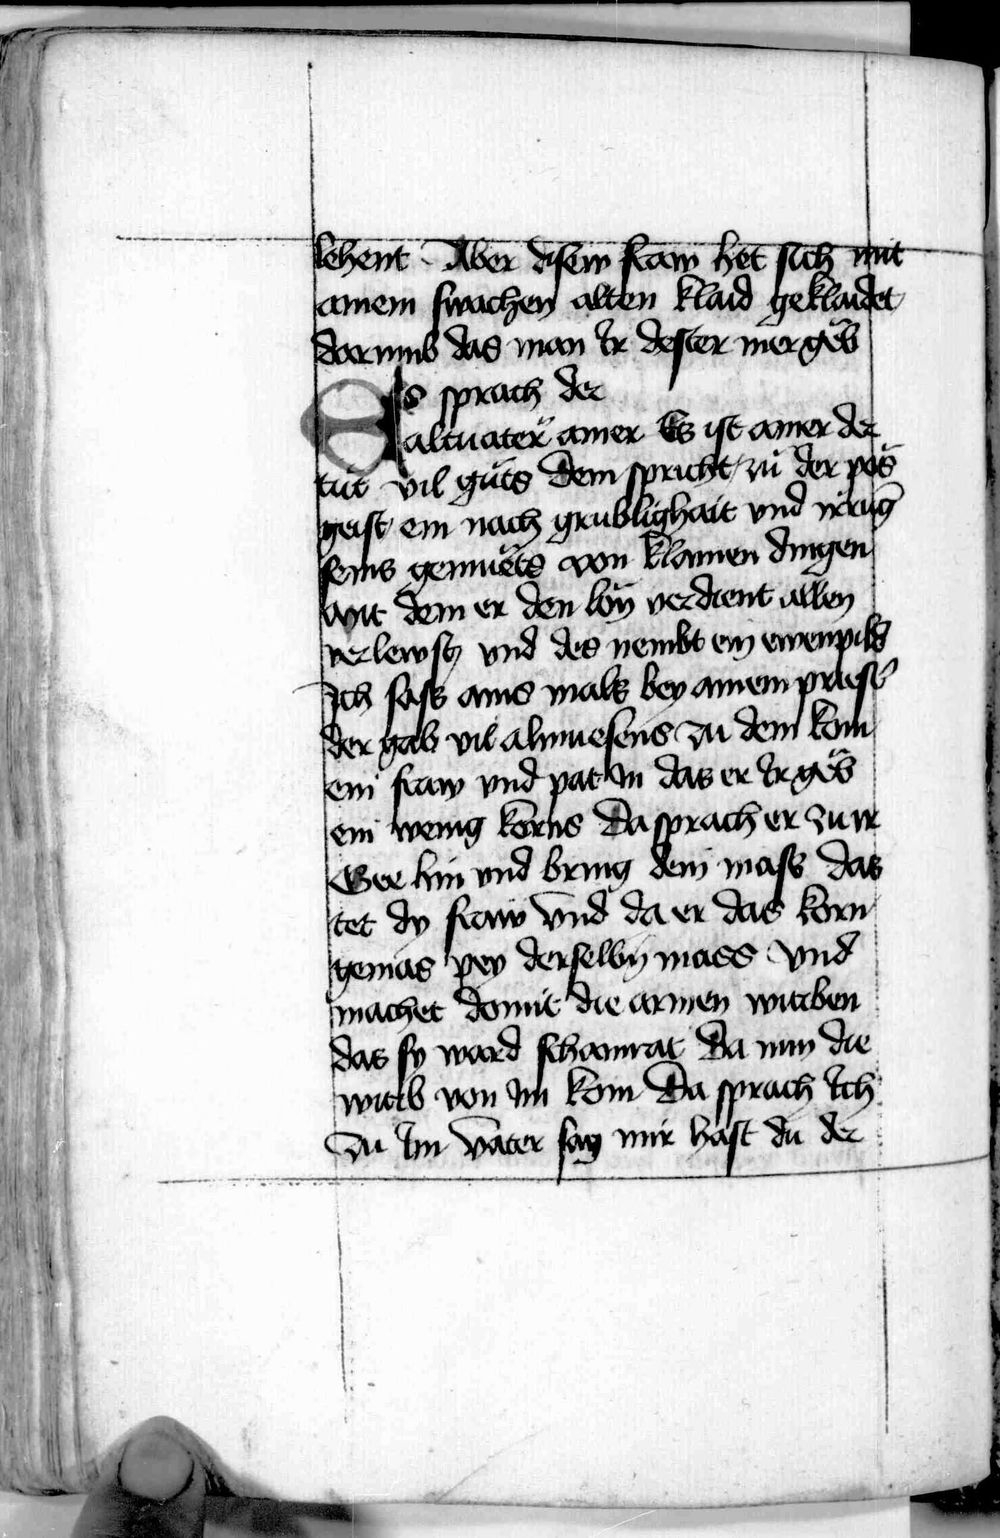 lehent Aber disew fraw het sich mit
ainem swachen alten klaid geklaidet
dar umb das man Ir dester mer gäb
Es sprach der
altuater ainer Es ist ainer der
tut vil gûts dem spricht zů der pös
geist ein nach grublighait vnd irrūg
seins gemuets von klainen dingen
mit dem er den lōn verdient allen
verlewst vnd des nembt ein ewenpild
Ich sass ains mals bey ainem priest
der gab vil almuesens zu dem kom
ein fraw vnd pat in das er Ir gäb
ein wenig korns Da sprach er zu ir
Gee hin vnd bring dein mass das
tet dy fraw vnd da er das korn
gemas pey derselbn mass vnd
machet domit die armen wittben
das sy ward schamrat Da nun die
wittb von im kom Da sprach Ich
zu Im Vater sag mir hast du der